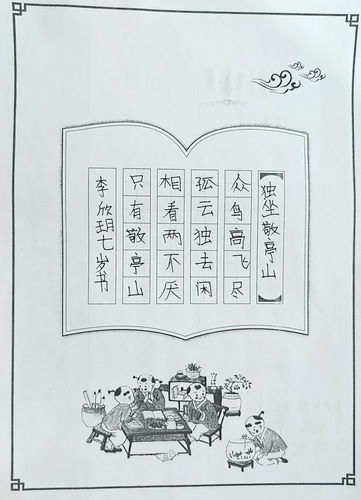 独坐敬亭山
众鸟高飞尽
孤云独去闲
相看两不厌
只有敬亭山
李欣玥七岁书